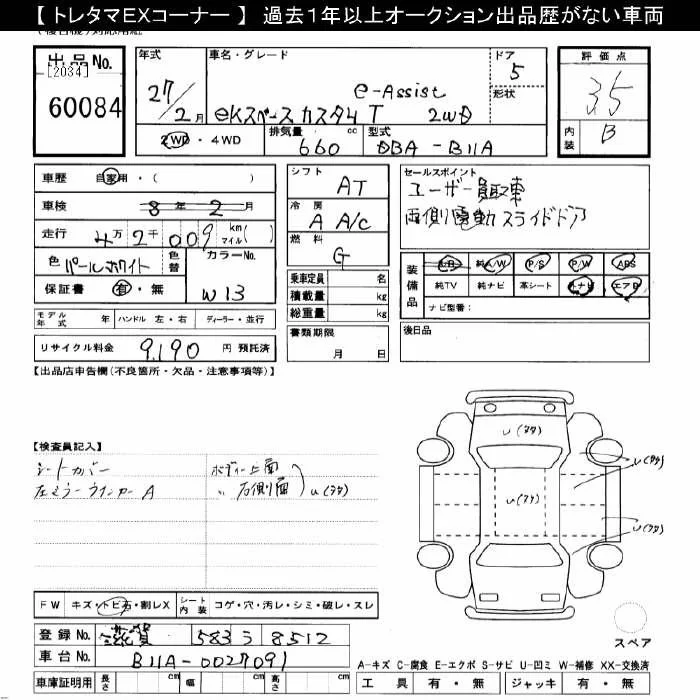 【 トレタマEXコーナー 】 過去1年以上オークション出品歴がない車両
出品No.
[2034]
60084
年式
27/2月
車名・グレード
e-Assist
eKスペースカスタム T 2WD
ドア
5
形状
評価点
3.5
内装
B
2WD・4WD
排気量 660 cc
型式 DBA-B11A
車歴 自家用・( )
車検 8年 2月
走行 4万 2千 009 km マイル( )
色 パールホワイト
色替
カラーNo. W13
保証書 有・無
モデル年式 年 ハンドル 左・右 ディーラー・並行
リサイクル料金 9,190 円 預託済
シフト AT
冷房 A A/C
燃料 G
乗車定員 名
積載量 kg
総重量 kg
書類期限
月 日
セールスポイント
ユーザー買取車
両側電動スライドドア
装備品 S・R 純A/W P/S P/W ABS
純TV 純ナビ 革シート 外ナビ エアB
ナビ型番:
後日品
【出品店申告欄(不良箇所・欠品・注意事項等)】
【検査員記入】
シートカバー
左ミラーウインカー A
ボディー上面
〃 右側面
u(ヌタ)
u(ヌタ)
u(ヌタ)
u(ヌタ)
u(ヌタ)
FW キズ・トビ石・割レX
シート内装 コゲ・穴・汚レ・シミ・破レ・スレ
登録No. 滋賀 583 う 8512
車台No. B11A-0027091
車庫証明用 長さ cm 幅 cm 高さ cm
スペア
A-キズ C-腐食 E-エクボ S-サビ U-凹ミ W-補修 XX-交換済
工具 有・無 ジャッキ 有・無